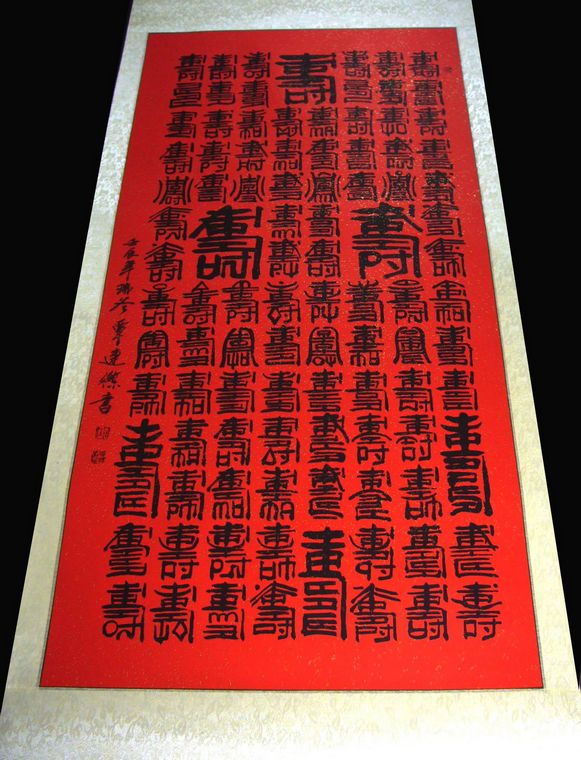 壽壽壽壽壽壽壽壽壽壽壽壽壽
壽壽壽壽壽壽壽壽壽壽壽壽壽
壽壽壽壽壽壽壽壽壽壽壽壽
壽壽壽壽壽壽壽壽壽壽壽壽
壽壽壽壽壽壽壽壽壽壽壽壽
壽壽壽壽壽壽壽壽壽壽壽壽
壽壽壽壽壽壽壽壽壽壽壽壽壽
壽壽壽壽壽壽壽壽壽壽壽壽壽
壬辰年 書